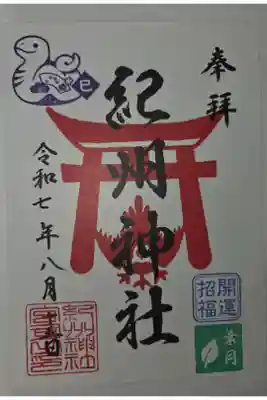 奉拝
紀州神社
令和七年八月十六日
巳
開運
招福
葉月
紀州神社